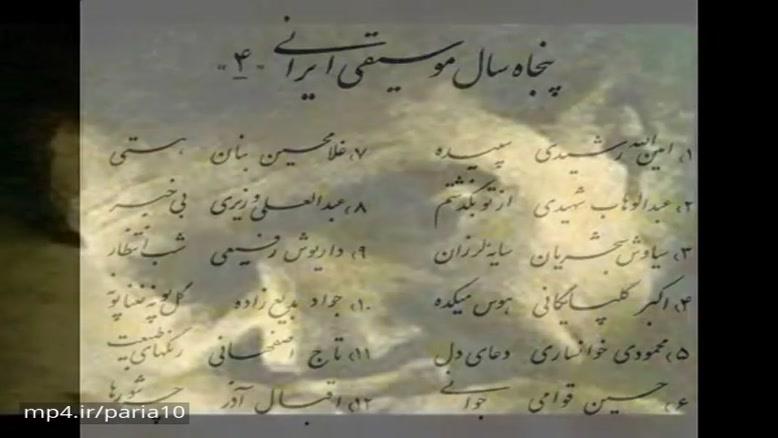 پنجاه سال موسیقی ایرانی "۴"
۱، امین الله رشیدی سپیده
۲، عبدالوهاب شهیدی از تو بگذشتم
۳، سیاوش شجریان سایه لرزان
۴، اکبر گلپایگانی هوس میکده
۵، محمودی خوانساری دعای دل
۶، حسین قوامی جوانی
۷، غلامحسین بنان هستی
۸، عبدالعلی وزیری بی خبر
۹، داریوش رفیعی شب انتظار
۱۰، جواد بدیع زاده گل پونه نعنا پونه
۱۱، تاج اصفهانی رنگهای طبیعت
۱۲، اقبال آذر چه شورها
mp4.ir/paria10